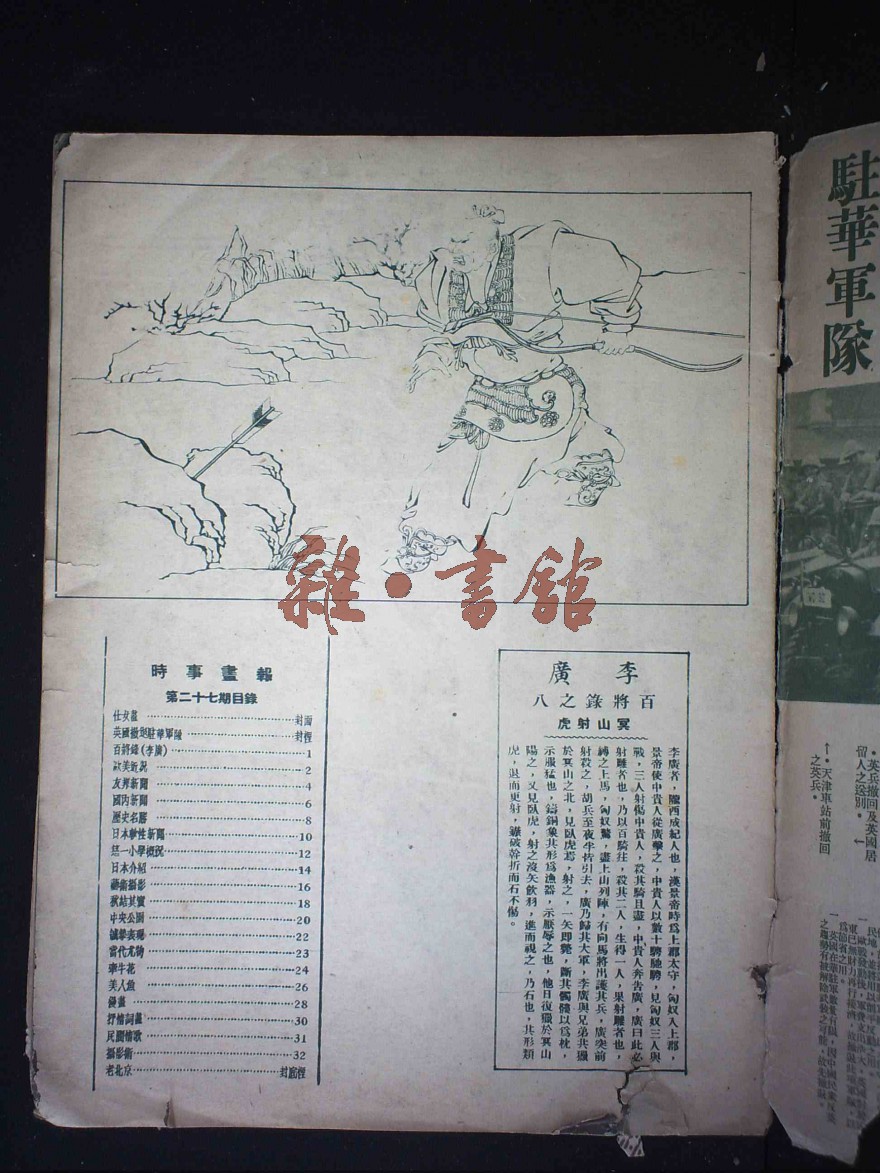 雜·書館
時事畫報
第二十七期目錄
仕女畫 封面
英國撤退駐華軍隊 封裡
百將錄(李廣) 1
歐美近況 2
友邦新聞 4
國內新聞 6
歷史名勝 8
日本軟性新聞 10
第一小學概況 12
日本介紹 14
藝術攝影 16
秋結其實 18
中央公園 20
22
當代尤物 23
牽牛花 24
美人魚 26
漫畫 28
抒情詞畫 30
民間情歌 31
攝影術 32
老北京 封底裡
李廣
百將錄之八
冥山射虎
李廣者，隴西成紀人也，漢景帝時為上郡太守，匈奴入上郡，
景帝使中貴人從廣擊之，中貴人以數十騎馳騁，見匈奴三人與
戰，三人射傷中貴人，殺其騎且盡，中貴人奔告廣，廣曰此必
射雕者也，乃以百騎往，殺其二人，生得一人，果射雕者也，
縛之上馬，匈奴驚，盡上山列陣，有向馬將出護其兵，廣突前
射殺之，胡兵至夜半皆引去，廣乃歸其大軍，李廣與兄弟共獵
於冥山之北，見臥虎焉，射之，一矢即斃，斷其髑髏以為枕，
示服猛也，鑄銅象其形為溲器，示厭辱之也，他日復獵於冥山
陽之，又見臥虎，射之沒矢飲羽，進而視之，乃石也，其形類
虎，退而更射，鏃破幹折而石不傷。
駐華軍隊
·英兵撤回及英國居
留人之送別。←
←·天津車站前撤回
之英兵。